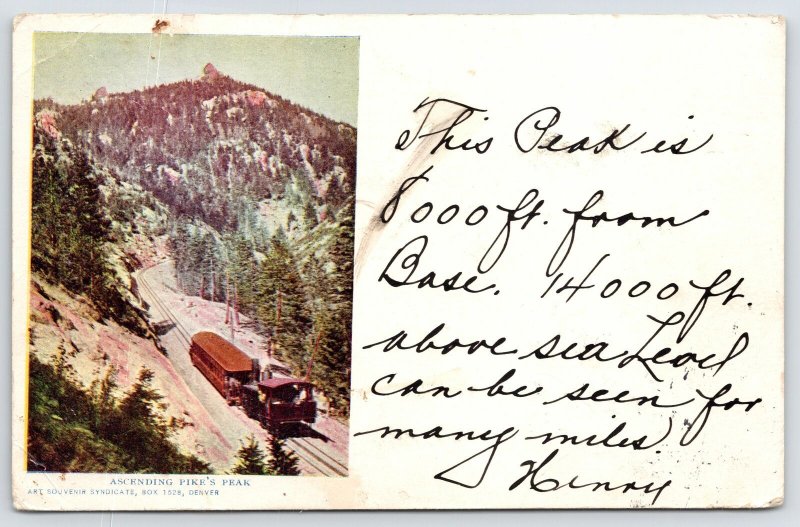 This Peak is
8000 ft. from
Base. 14000 ft.
above sea Level
can be seen for
many miles.
Henry
ASCENDING PIKE'S PEAK
ART SOUVENIR SYNDICATE, BOX 1528, DENVER